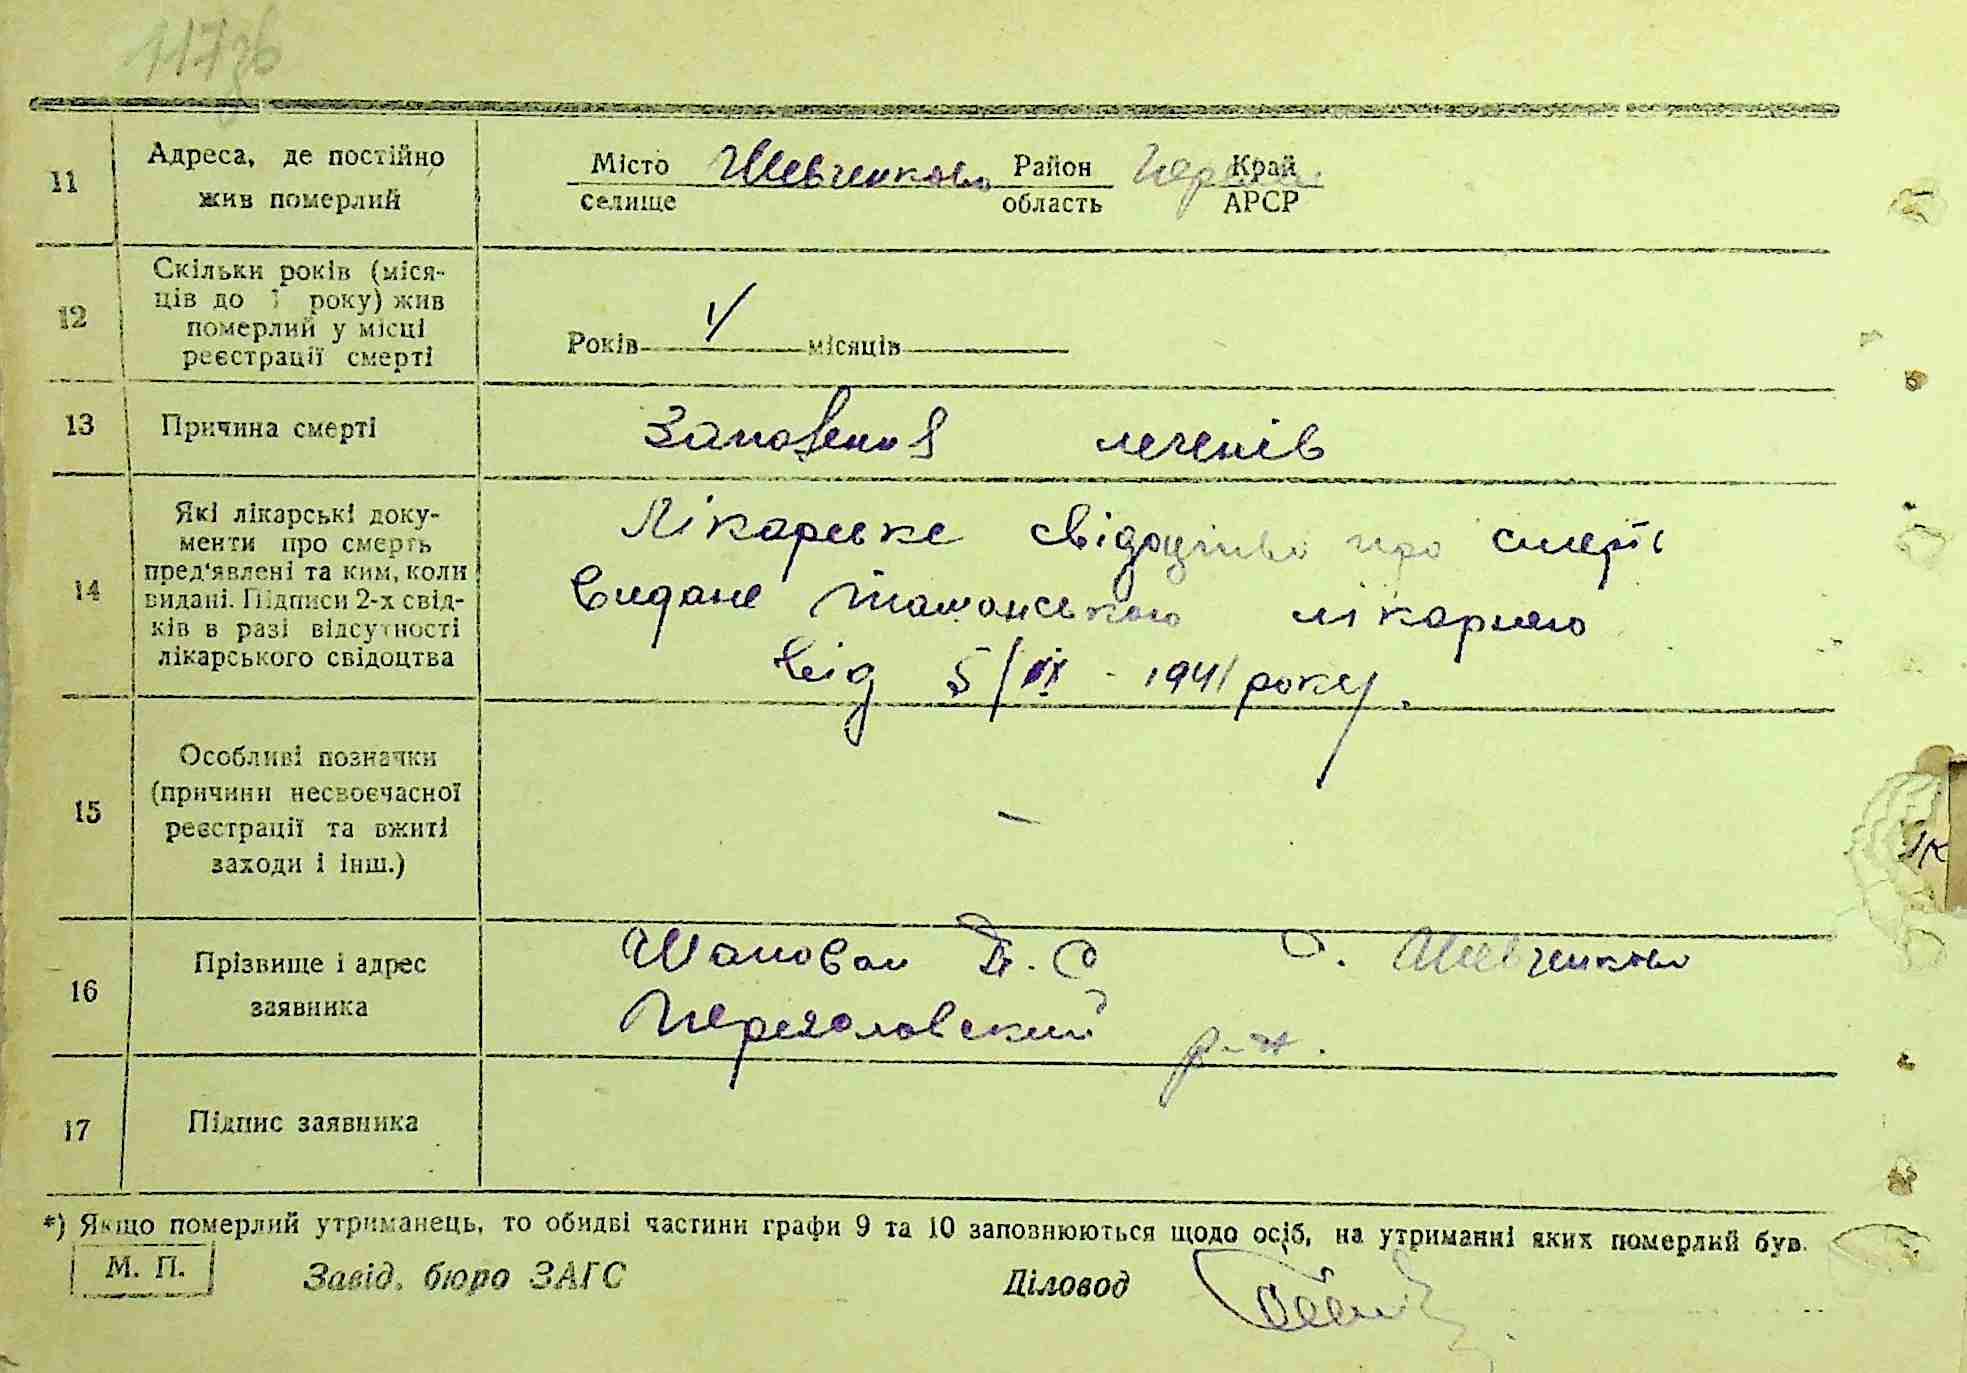 117зв
11 Адреса, де постійно жив померлий Місто селище Шевченково Район область Край АРСР
12 Скільки років (міся-
ців до 1 року) жив
померлий у місці
реєстрації смерті
Років місяців
13 Причина смерті Запалення легенів
14 Які лікарські доку-
менти про смерть
пред'явлені та ким, коли
видані. Підписи 2-х свід-
ків в разі відсутності
лікарського свідоцтва
Лікарське свідоцтво про смерть
видане лікарнею
від 5/ 1941 року.
15 Особливі позначки
(причини несвоєчасної
реєстрації та вжиті
заходи і інш.)
–
16 Прізвище і адрес
заявника
Шаповал Д. С. Шевченково
р-н.
17 Підпис заявника
*) Якщо померлий утриманець, то обидві частини графи 9 та 10 заповнюються щодо осіб, на утриманні яких померлий був.
М. П. Завід. бюро ЗАГС Діловод